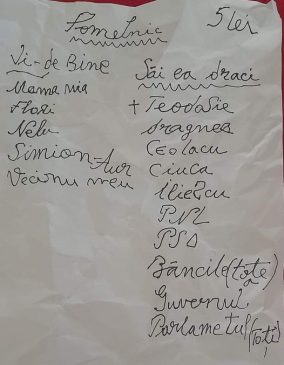 Pomelnic 5 lei
Vi-de Bine
Mama mia
Flori
Nelu
Simion-Aur
Vecinu meu
Săi ea draci
+ Teodosie
Dragnea
Ceolacu
Ciuca
Iliescu
PNL
PSD
Băncile (toate)
Guvernul
Parlametul (Toți)